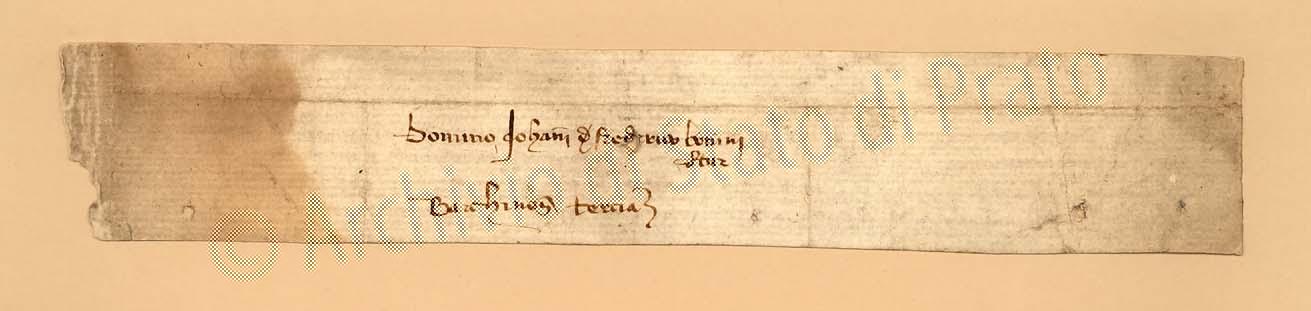 Domino Johani d Federico bonini
detur
Barchinone tercia
© Archivio di Stato di Prato